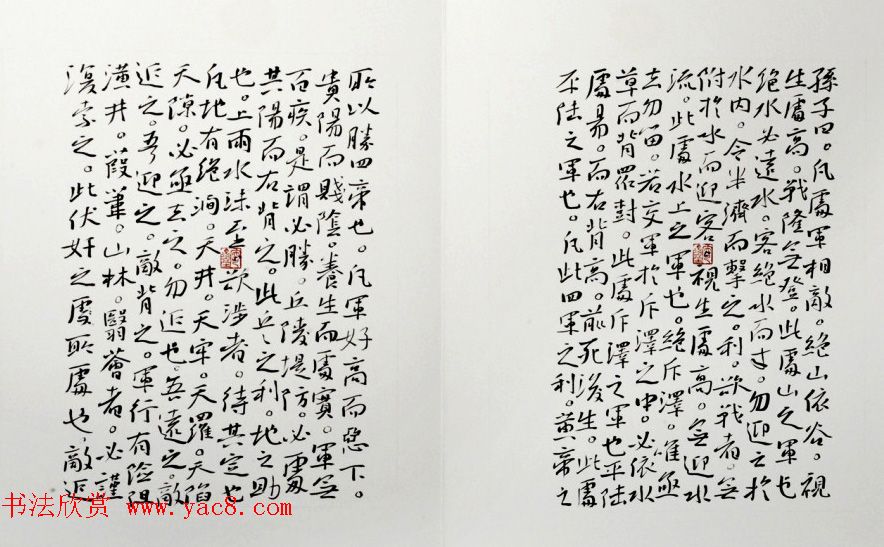 孫子曰。凡處軍相敵。絕山依谷。視
生處高。戰隆無登。此處山之軍也
絕水必遠水。客絕水而來。勿迎之於
水內。令半濟而擊之。利。欲戰者。無
附於水而迎客。視生處高。無迎水
流。此處水上之軍也。絕斥澤。唯亟
去勿留。若交軍於斥澤之中。必依水
草而背眾樹。此處斥澤之軍也平陸
處易。而右背高。前死後生。此處
平陸之軍也。凡此四軍之利。黃帝之
所以勝四帝也。凡軍好高而惡下。
貴陽而賤陰。養生而處實。軍無
百疾。是謂必勝。丘陵堤防。必處
其陽而右背之。此兵之利。地之助
也。上雨水沫至欲涉者。待其定也
凡地有絕澗。天井。天牢。天羅。天陷
天隙。必亟去之。勿近也。吾遠之。敵
近之。吾迎之。敵背之。軍行有險阻
潢井。葭葦。山林。翳薈者。必謹
復索之。此伏奸之處所處也。敵近
书法欣赏 www.yac8.com